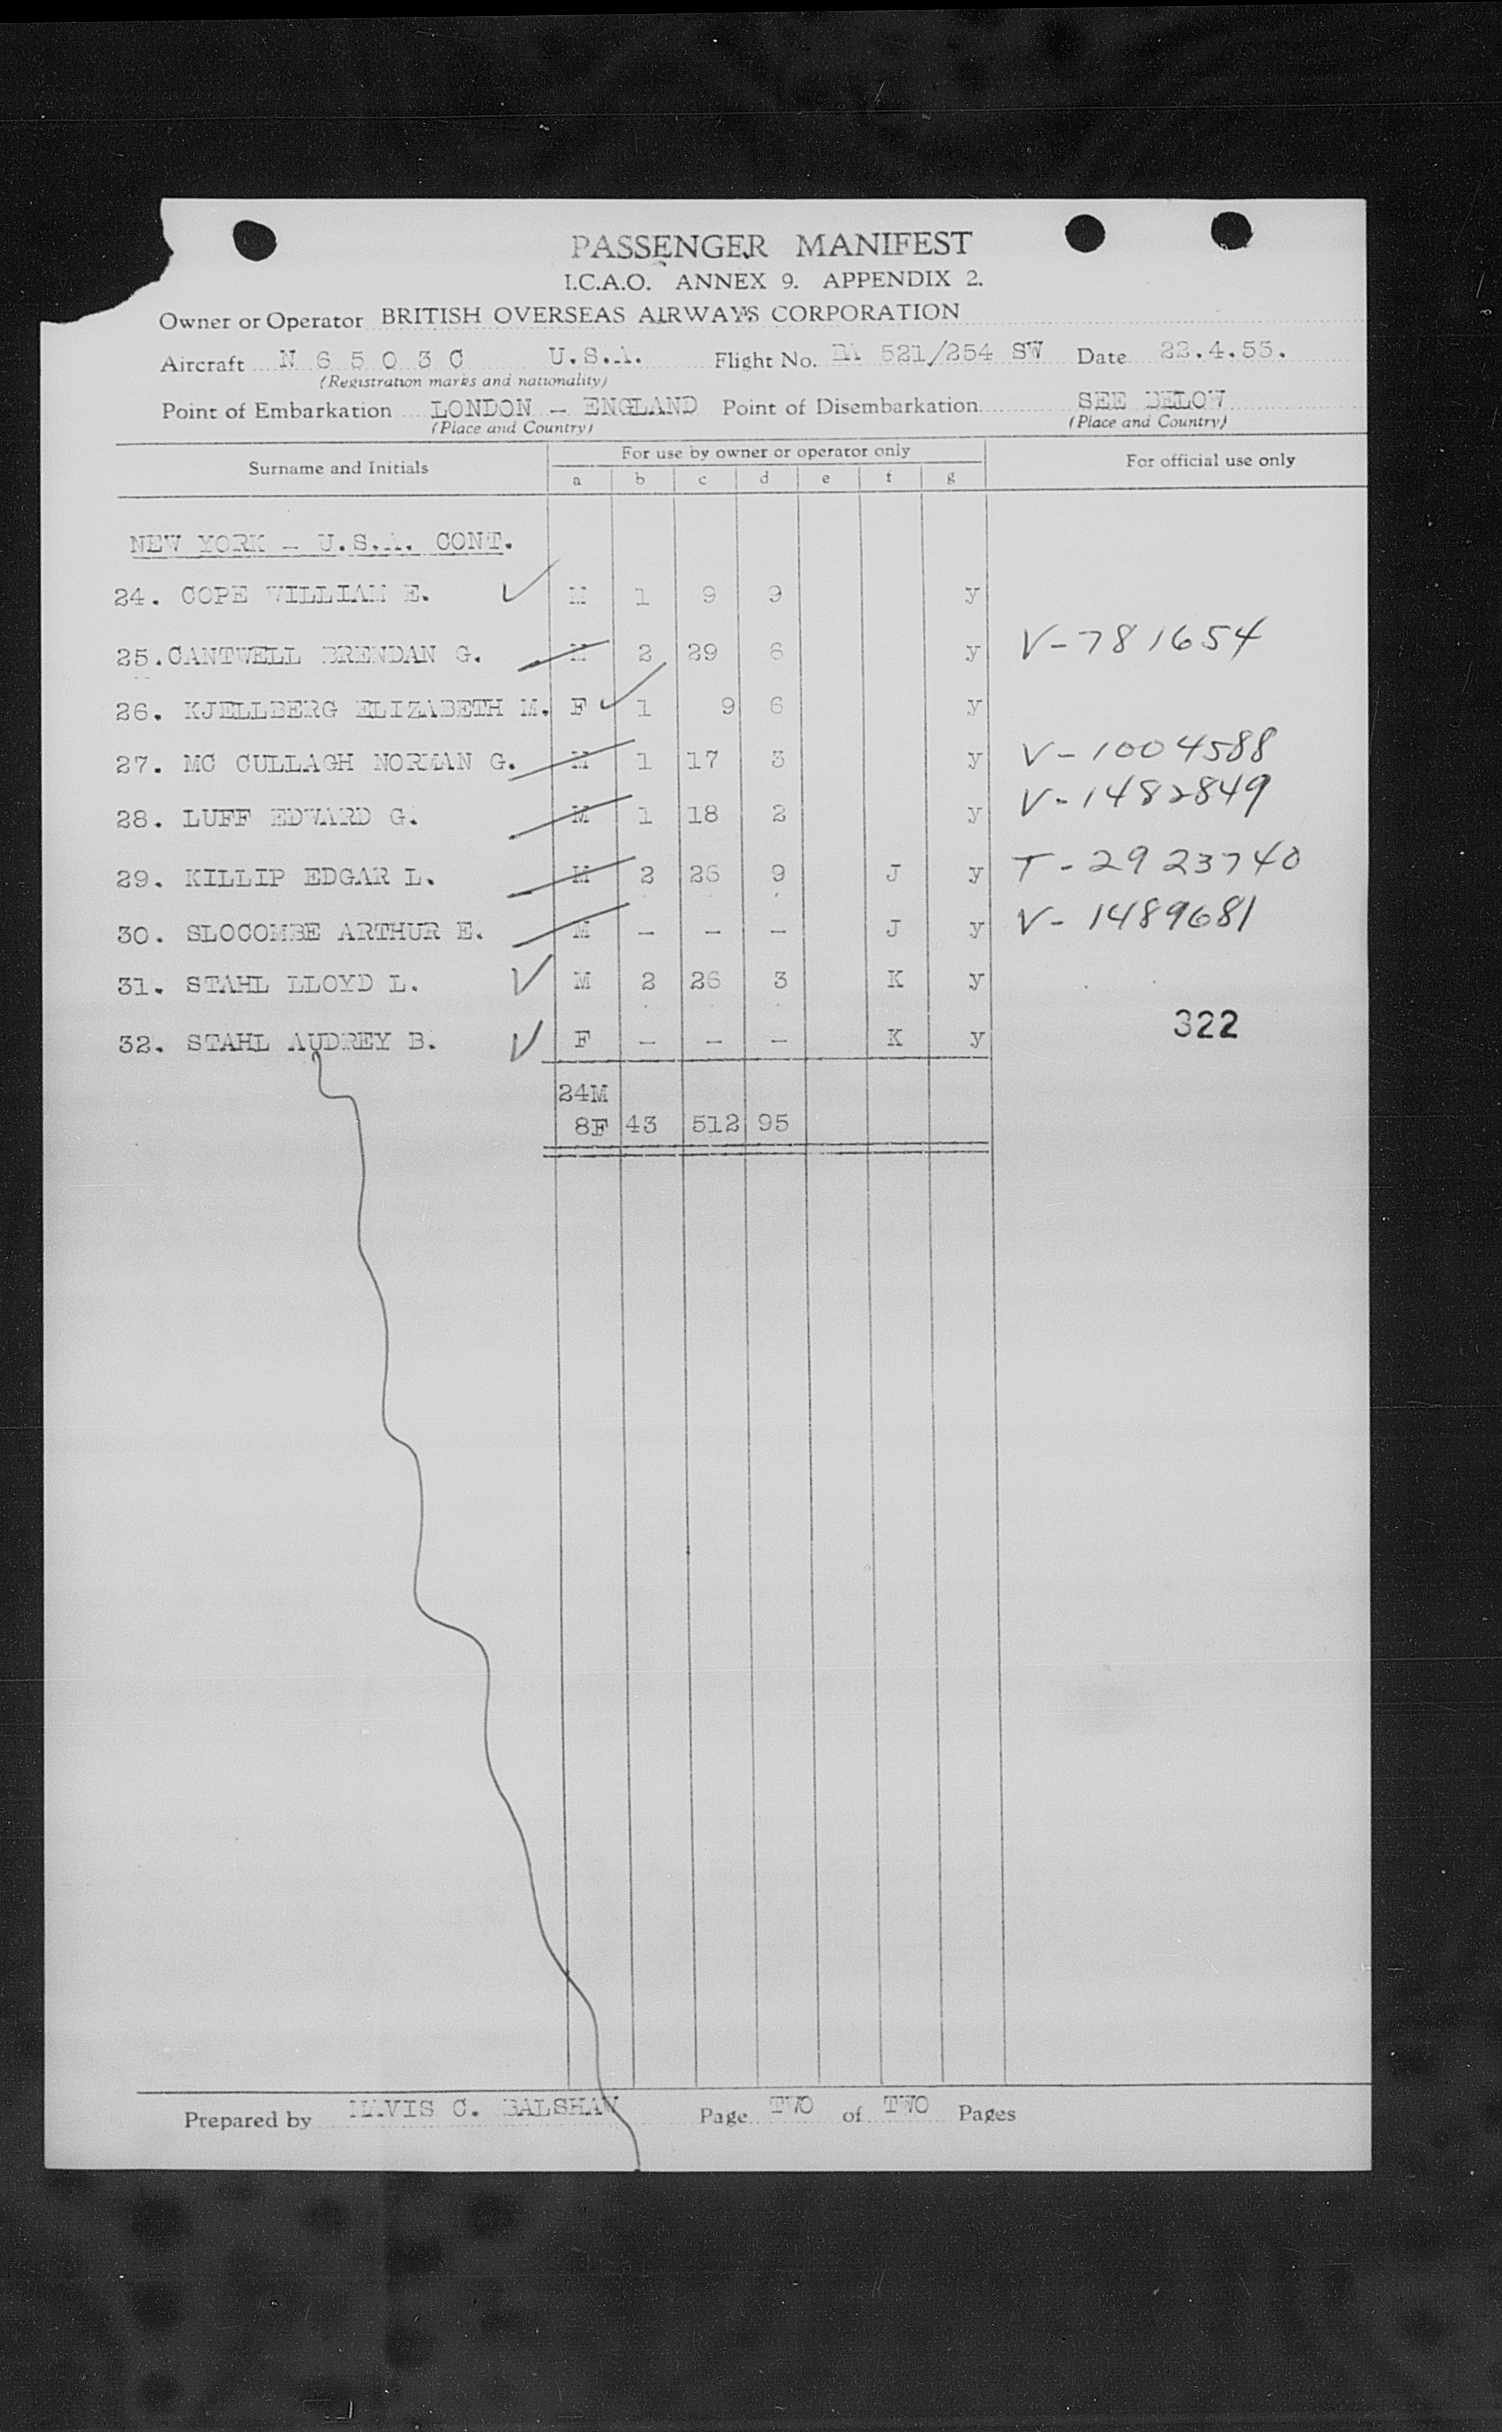 PASSENGER MANIFEST
I.C.A.O. ANNEX 9. APPENDIX 2.
Owner or Operator BRITISH OVERSEAS AIRWAYS CORPORATION
Aircraft N 6 5 0 3 C U.S.A. Flight No. BA 521/254 SW Date 22.4.55.
(Registration marks and nationality)
Point of Embarkation LONDON - ENGLAND Point of Disembarkation SEE BELOW
(Place and Country) (Place and Country)
Surname and Initials For use by owner or operator only For official use only
a b c d e f g
NEW YORK - U.S.A. CONT.
24. COPE WILLIAM E. ✓ M 1 9 9 y
25. CANTWELL BRENDAN G. M 2 29 6 y V-781654
26. KJELLBERG ELIZABETH M. F ✓ 1 9 6 y
27. MC CULLAGH NORMAN G. M 1 17 3 y V-1004588
28. LUFF EDWARD G. M 1 18 2 y V-1482849
29. KILLIP EDGAR L. M 2 26 9 J y T-2923740
30. SLOCOMBE ARTHUR E. M - - - J y V-1489681
31. STAHL LLOYD L. ✓ M 2 26 3 K y
32. STAHL AUDREY B. ✓ F - - - K y 322
24M
8F 43 512 95
Prepared by MAVIS C. BALSHAW Page TWO of TWO Pages